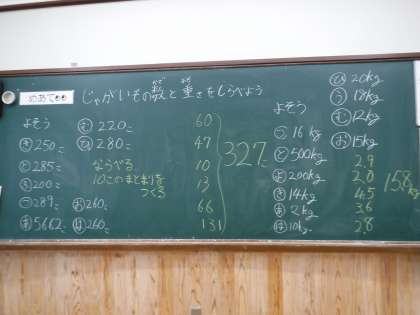 めあて
じゃがいもの数と重さをしらべよう
かず おも
よそう
き 250こ
と 285こ
え 200こ
つ 289こ
あ 5662こ
む 220こ
ひ 280こ
ならべる
10このまとまりを
つくる
お 260こ
は 260こ
60
47
10
13
66
131
327こ
よそう
つ 16kg
と 500kg
よ 200kg
き 14kg
あ 2kg
は 10kg
ひ 20kg
う 18kg
む 12kg
お 15kg
2.9
2.0
4.5
3.6
2.8
15.8kg